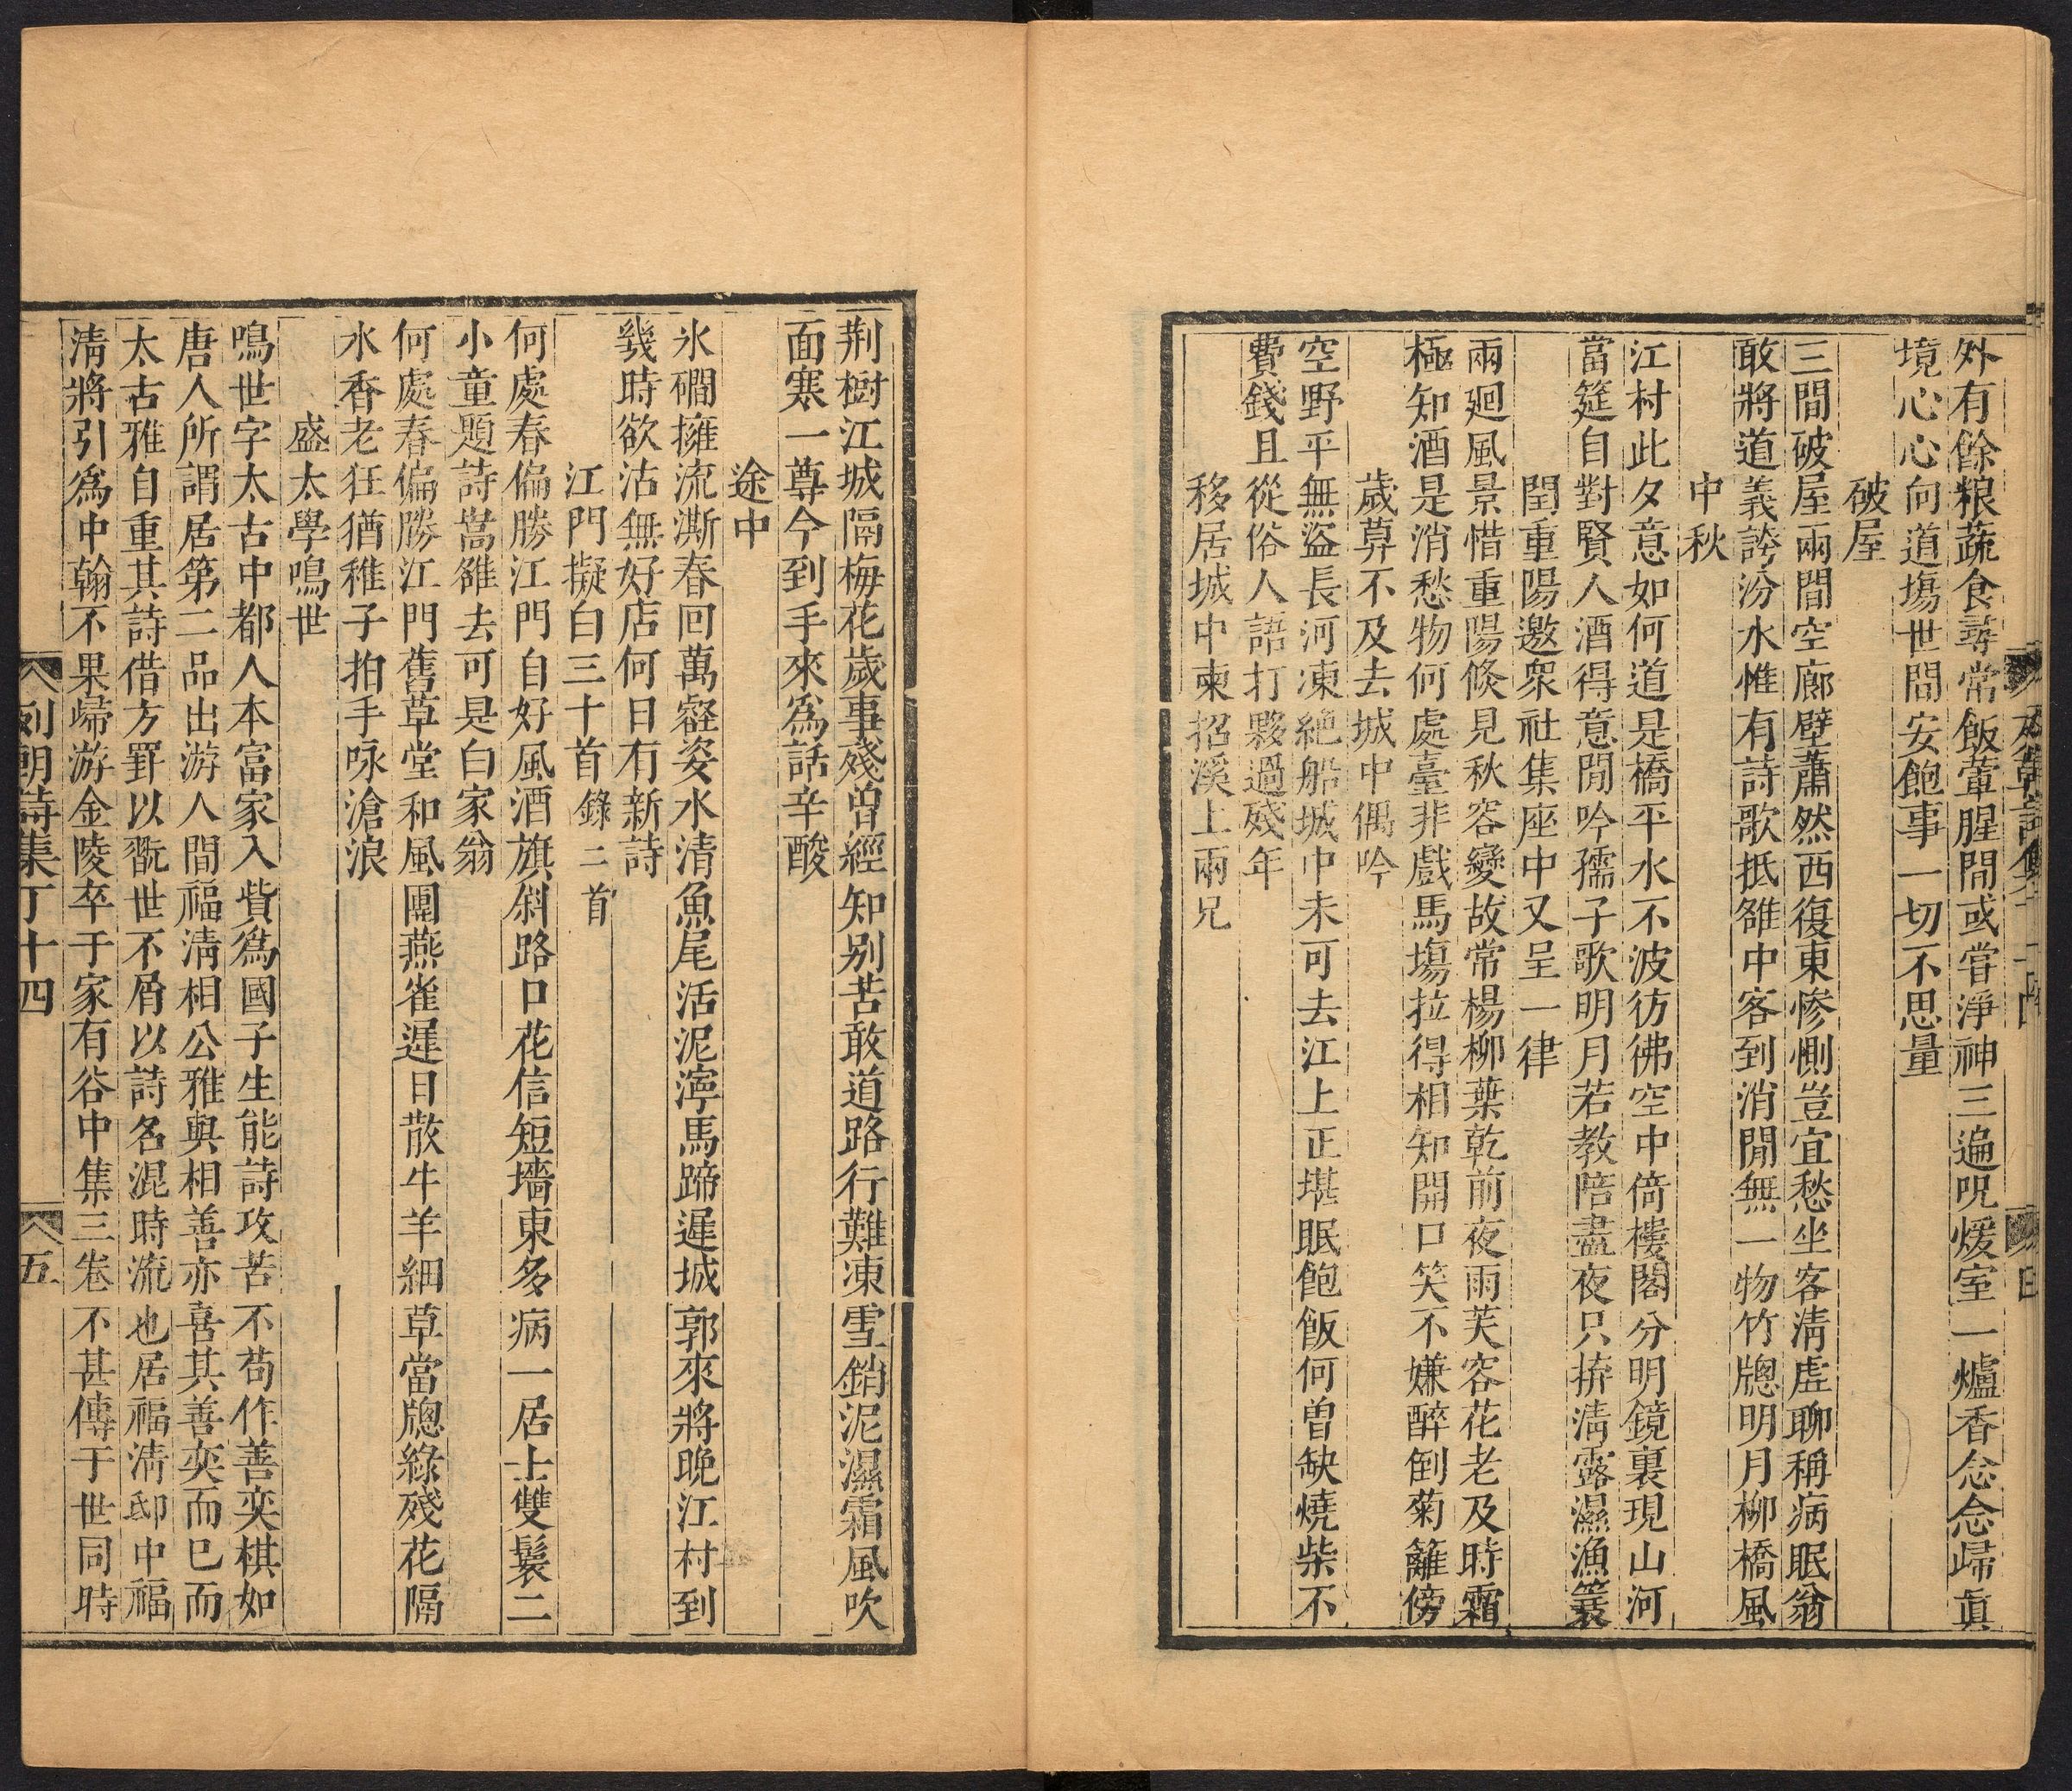 外有餘粮蔬食尋常飯葷腥間或嘗淨神三遍呪煖室一爐香念念歸眞
境心心向道塲世間安飽事一切不思量
破屋
三間破屋兩間空廊壁蕭然西復東慘惻豈宜愁坐客淸虛聊稱病眠翁
敢將道義誇汾水惟有詩歌抵雒中客到消閒無一物竹牕明月柳橋風
中秋
江村此夕意如何道是橋平水不波彷彿空中倚樓閣分明鏡裏現山河
當筵自對賢人酒得意閒吟孺子歌明月若教陪盡夜只拚淸露濕漁簑
閏重陽邀衆社集座中又呈一律
兩廻風景惜重陽倏見秋容變故常楊柳葉乾前夜雨芙容花老及時霜
極知酒是消愁物何處臺非戲馬塲拉得相知開口笑不嫌醉倒菊籬傍
歲算不及去城中偶吟
空野平無盜長河凍絶船城中未可去江上正堪眠飽飯何曾缺燒柴不
費錢且從俗人語打夥過殘年
移居城中柬招溪上兩兄
荆樹江城隔梅花歲事殘曽經知别苦敢道路行難凍雪銷泥濕霜風吹
面寒一尊今到手來爲話辛酸
途中
氷磵擁流澌春回萬壑姿水清魚尾活泥濘馬蹄遲城郭來將晚江村到
幾時欲沽無好店何日有新詩
江門擬白三十首錄二首
何處春偏勝江門自好風酒旗斜路口花信短墻東多病一居士雙鬟二
小童題詩嵩雒去可是白家翁
何處春偏勝江門舊草堂和風團燕雀遲日散牛羊細草當牕綠殘花隔
水香老狂猶稚子拍手咏滄浪
盛太學鳴世
鳴世字太古中都人本富家入貲爲國子生能詩攻苦不苟作善奕棋如
唐人所謂居第二品出游人間福淸相公雅與相善亦喜其善奕而巳而
太古雅自重其詩借方罫以翫世不屑以詩名混時流也居福淸邸中福
淸將引爲中翰不果歸游金陵卒于家有谷中集三卷不甚傳于世同時
列朝詩集丁十四
五